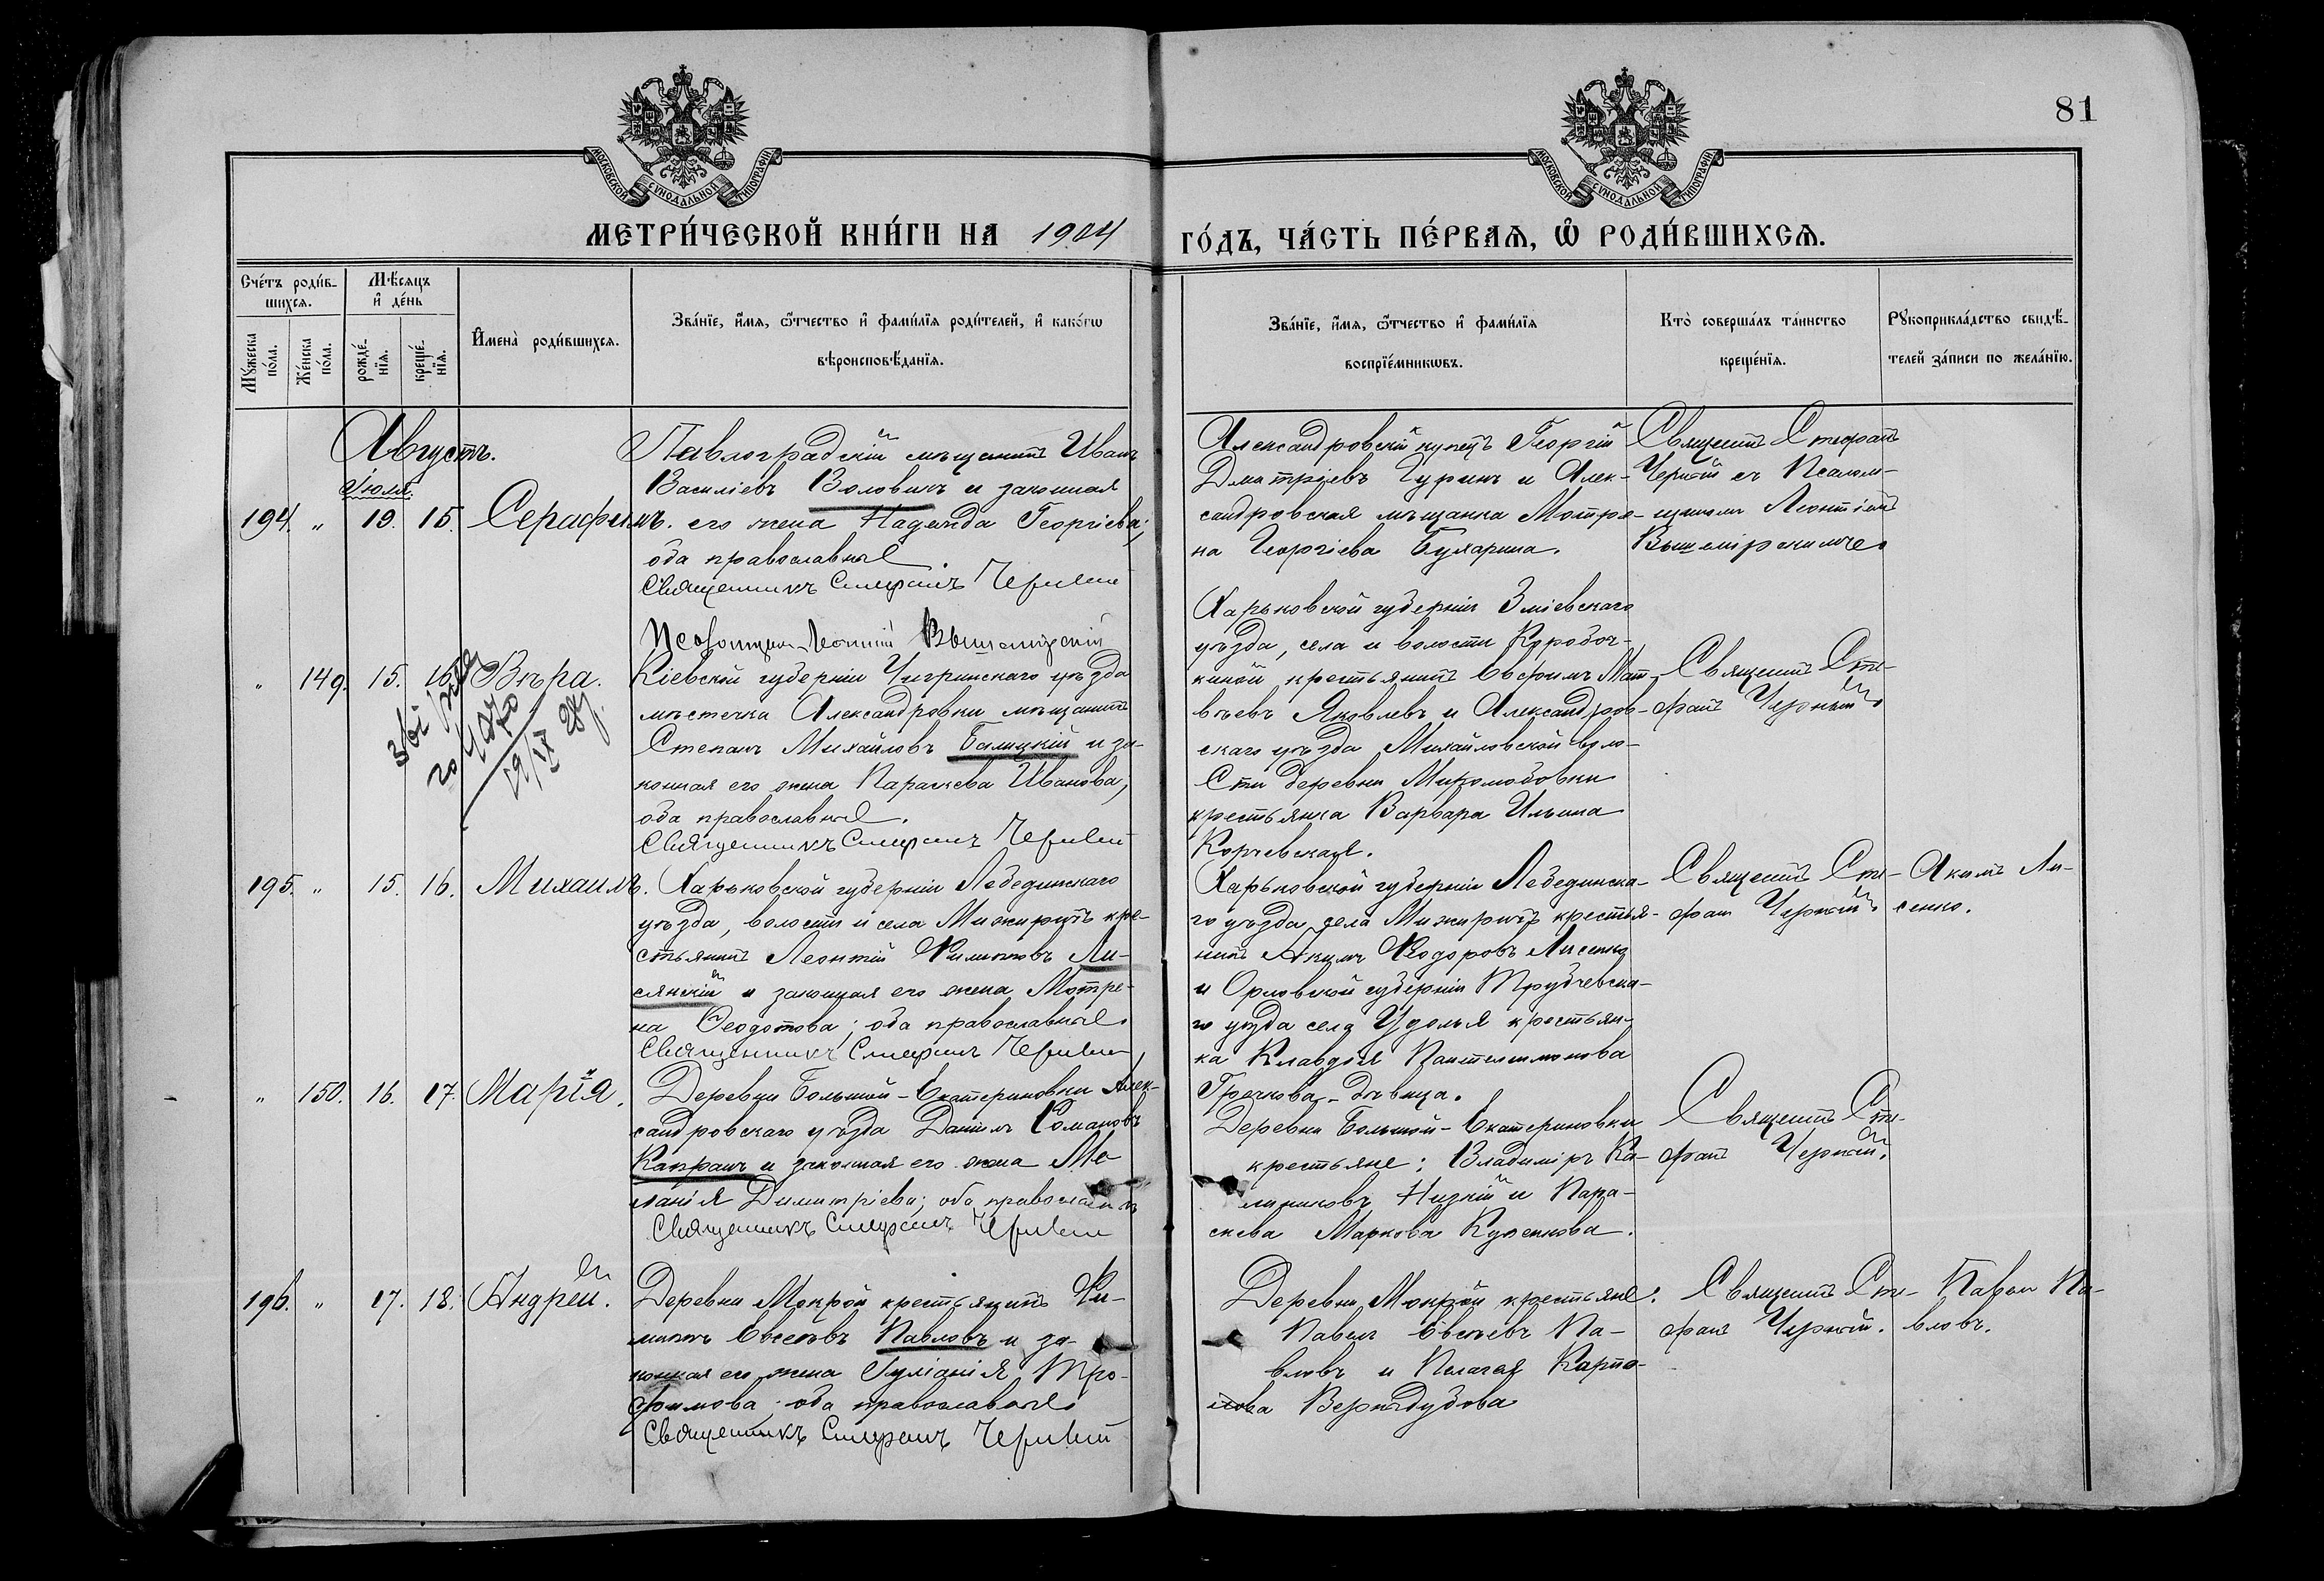 81
МОСКОВСКОЙ СУНОДАЛЬНОЙ ТИПОГРАФІИ
МОСКОВСКОЙ СУНОДАЛЬНОЙ ТИПОГРАФІИ
МЕТРИ́ЧЕСКОЙ КНИ́ГИ НА 1904
ГО́ДЪ, ЧА́СТЬ ПЕ́РВАѦ, Ѡ҆ РОДИ́ВШИХСѦ.
Счéтъ роди́в-
шихсѧ.
Мꙋ́жеска по́ла.
Же́нска по́ла.
Мѣ́сѧцъ
и҆ де́нь
рожде́-нїѧ.
креще́-нїѧ.
И҆мена̀ роди́вшихсѧ.
Зва́нїе, и҆́мѧ, ѻ҆́тчество и҆ фами́лїѧ роди́телей, и҆ какóгѡ
вѣроисповѣ́данїѧ.
Зва́нїе, и҆́мѧ, ѻ҆́тчество и҆ фами́лїѧ
воспрїе́мникѡвъ.
Кто̀ соверша́лъ та́инство
креще́нїѧ.
Рꙋкоприкла́дство свидѣ́-
телей за́писи по жела́нїю.
Августъ.
Іюля.
194. " 19. 15. Серафимъ.
Павлоградскій мѣщанинъ Иванъ
Василіевъ Воловикъ и законная
его жена Надежда Георгіева;
оба православные
Священникъ Стефанъ Черный
Псаломщикъ Леонтій Вышемірскій
Александровскій купецъ Георгій
Дматріевъ Гуринъ и Алек-
сандровская мѣщанка Мотро-
на Георгіева Бухарина.
Священ. Стефанъ
Черный съ Псалом-
щикомъ Леонтіемъ
Вышемірскимъ.
" 149. 15. 16. Вѣра.
19/IX 28 г.
Кіевской губерніи Чигринскаго уѣзда
мѣстечка Александровки мѣщанинъ
Степанъ Михайловъ Балицкій и за-
конная его жена Параскева Иванова;
оба православные.
Священникъ Стефанъ Черный
Харьковской губерніи Зміевскаго
уѣзда, села и волости Коробоч-
киной крестьянинъ Евфимъ Мат-
вѣевъ Яковлевъ и Александров-
скаго уѣзда Михайловской воло-
сти деревни
крестьянка Варвара Ильина
Корчевская.
Священ. Сте-
фанъ Черный.
195. " 15. 16. Михаилъ.
Харьковской губерніи Лебединскаго
уѣзда, волости и села Межиричъ кре-
стьянинъ Леонтій Филиповъ Ли-
сянскій и законная его жена Мотро-
на Ѳеодотова; оба православные.
Священникъ Стефанъ Черный
Харьковской губерніи Лебединска-
го уѣзда села Межиричъ крестья-
нинъ Акимъ Ѳеодоровъ Лисенко
и Орловской губерніи Трубчевска-
го уѣзда села Удолья крестьян-
ка Клавдія Пантелеимонова
Гречкова – дѣвица.
Священ. Сте-
фанъ Черный.
Акимъ Ли-
сенко.
" 150. 16. 17. Марія.
Деревни Большой-Екатериновки Алек-
сандровскаго уѣзда Даніилъ Романовъ
Капранъ и законная его жена Ме-
ланія Димитріева; оба православн.
Священникъ Стефанъ Черный
Деревни Большой-Екатериновки
крестьяне: Владиміръ Ка-
линиковъ Низкій и Пара-
скева Маркова Купенкова.
Священ. Сте-
фанъ Черный.
196. " 17. 18. Андрей.
Деревни Мокрой крестьянинъ Фи-
липпъ Евсеевъ Павловъ и за-
конная его жена Іуліанія Тро-
фимова; оба православные
Священникъ Стефанъ Черный
Деревни Мокрой крестьяне:
Павелъ Евсеевъ Па-
вловъ и Пелагея Карпо-
ва Вернидубова
Священ. Сте-
фанъ Черный.
Павелъ Па-
вловъ.